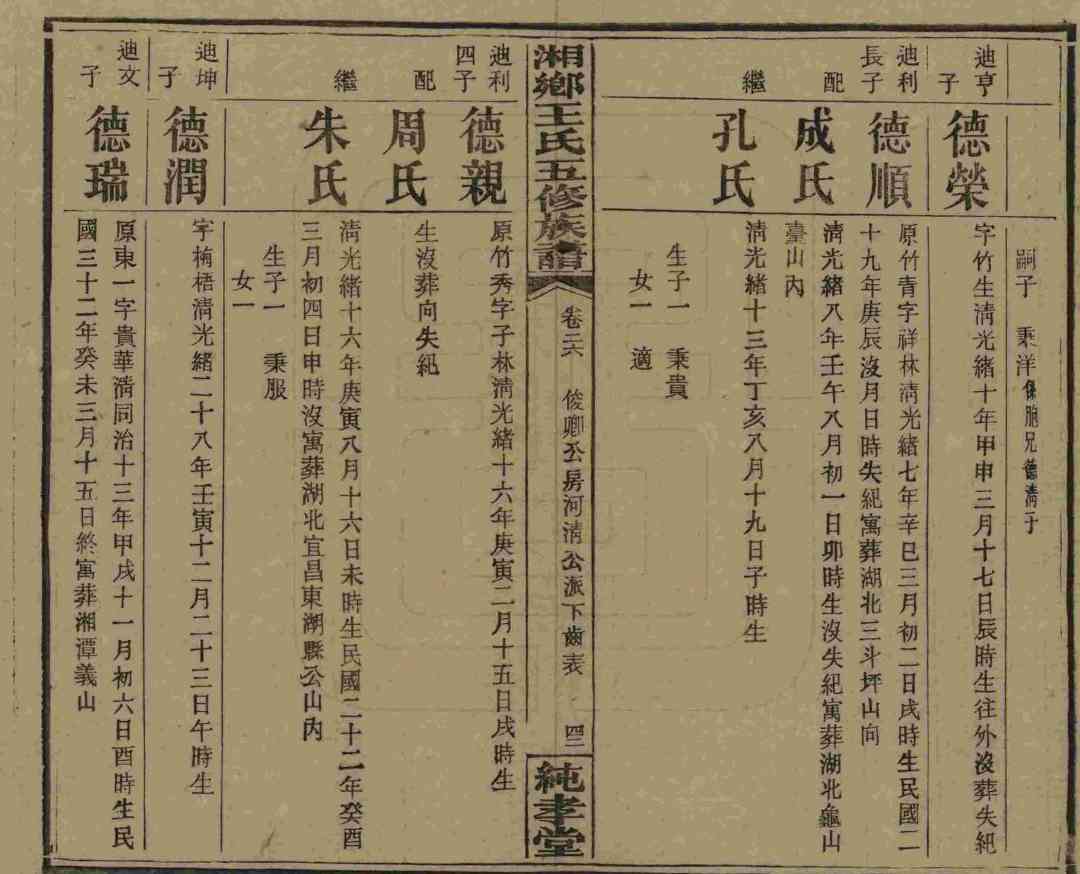 嗣子 秉洋係胞兄德清子
迪亨子
德榮
字竹生清光緒十年甲申三月十七日辰時生往外沒葬失紀
迪利長子
德順
原竹青字祥林清光緒七年辛巳三月初二日戌時生民國二
十九年庚辰沒月日時失紀寓葬湖北三斗坪山向
配
成氏
清光緒八年壬午八月初一日卯時生沒失紀寓葬湖北龜山
臺山內
繼
孔氏
清光緒十三年丁亥八月十九日子時生
生子一 秉貴
女一 適
湘鄉王氏五修族譜
卷三六 俊卿公房河清公派下齒表
純孝堂
迪利四子
德親
原竹秀字子林清光緒十六年庚寅二月十五日戌時生
配
周氏
生沒葬向失紀
繼
朱氏
清光緒十六年庚寅八月十六日未時生民國二十二年癸酉
三月初四日申時沒寓葬湖北宜昌東湖縣公山內
生子一 秉服
女一
迪坤子
德潤
字梅梧清光緒二十八年壬寅十二月二十三日午時生
迪文子
德瑞
原東一字貴華清同治十三年甲戌十一月初六日酉時生民
國三十二年癸未三月十五日終寓葬湘潭義山